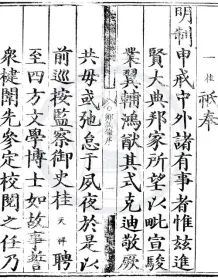 一桂祗奉
明制申戒中外諸有事者惟兹進
賢大典邦家所望以毗宣駿
業翼輔鴻猷其式克迪厥
共毋或弛怠于夙夜於是以
前巡按監察御史桂天祥聘
至四方文學博士如故事誓
衆棘闈先參定校閱之任乃